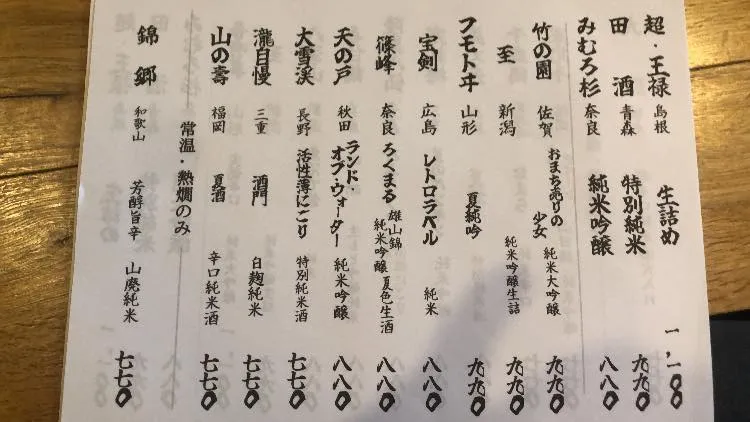 超・王禄 島根 生詰め 一、一〇〇
田酒 青森 特別純米 九九〇
みむろ杉 奈良 純米吟醸 八八〇
竹の園 佐賀 おまち売りの少女 純米大吟醸 九九〇
至 新潟 純米吟醸生詰 九九〇
フモトヰ 山形 夏純吟 九九〇
宝剣 広島 レトロラベル 純米 八八〇
篠峰 奈良 ろくまる 雄山錦 純米吟醸 夏色生酒 八八〇
天の戸 秋田 ランド・オブ・ウォーター 純米吟醸 八八〇
大雪渓 長野 活性薄にごり 特別純米酒 七七〇
瀧自慢 三重 酒門 白麹純米 七七〇
山の壽 福岡 夏酒 辛口純米酒 七七〇
常温・熱燗のみ
錦郷 和歌山 芳醇旨辛 山廃純米 七七〇